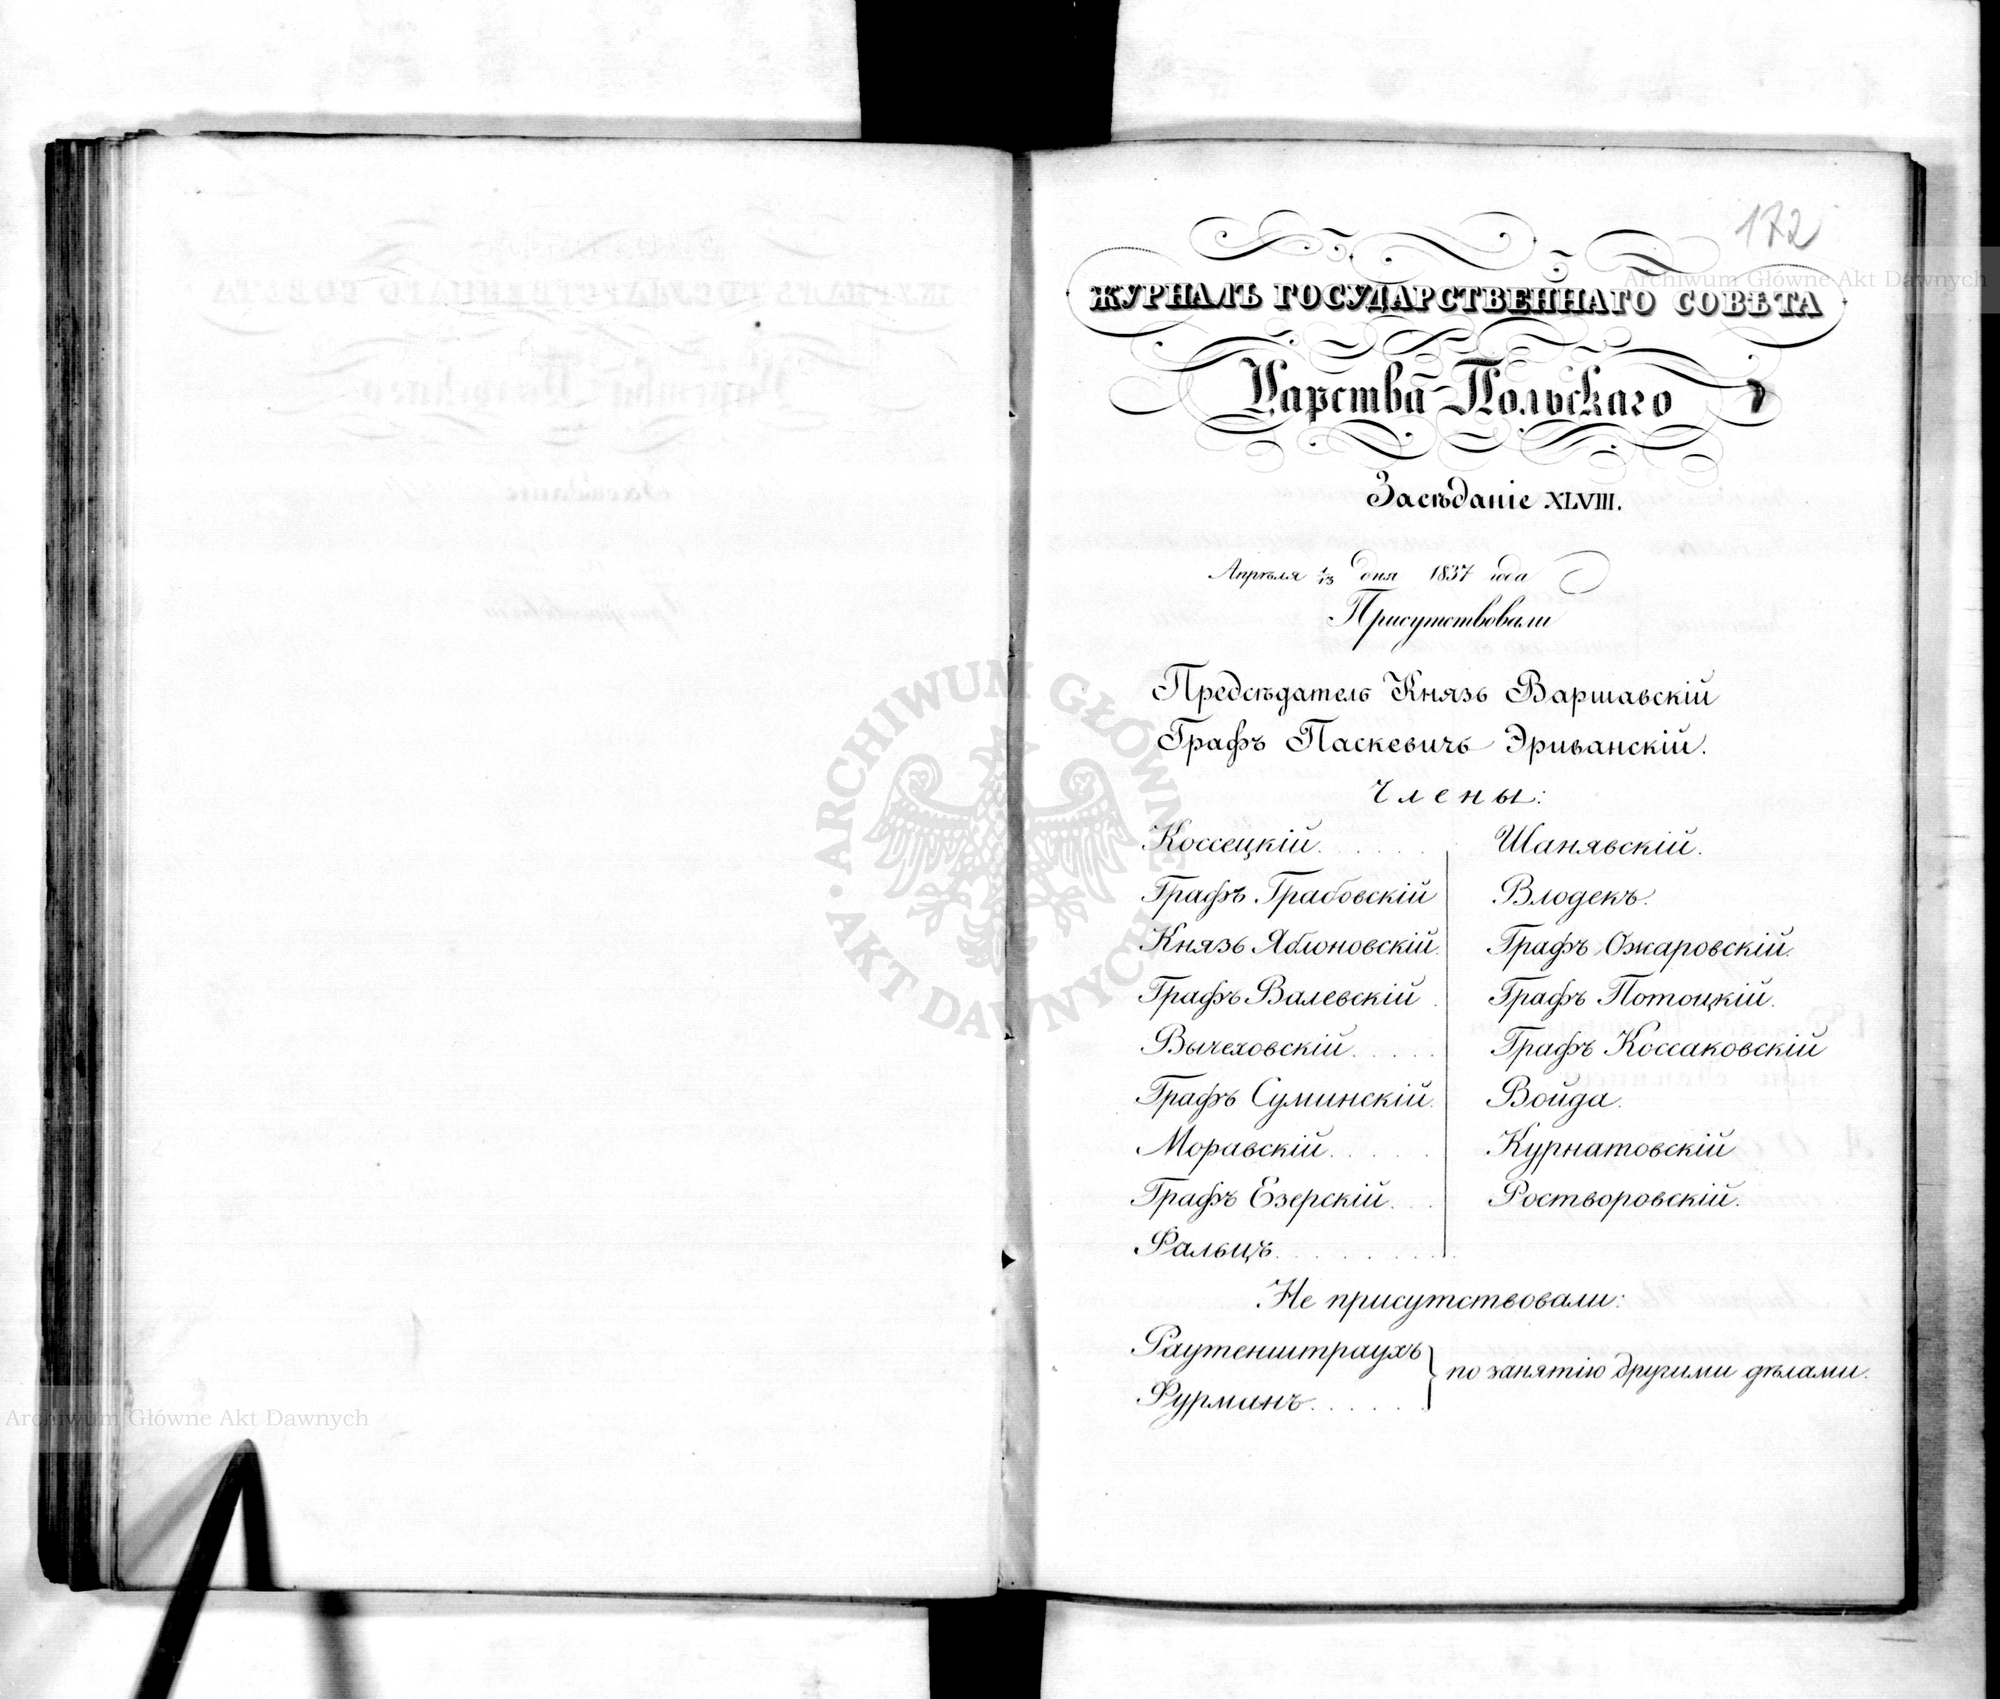 172
ЖУРНАЛЪ ГОСУДАРСТВЕННАГО СОВѢТА
Царства Польскаго
Засѣданіе XLVIII.
Апрѣля 1/13 дня 1837 года
Присутствовали
Предсѣдатель Князь Варшавскій
Графъ Паскевичь Эриванскій.
Члены:
Коссецкій. Шанявскій.
Графъ Грабовскій Влодекъ.
Князь Яблоновскій. Графъ Ожаровскій.
Графъ Валевскій. Графъ Потоцкій.
Вычеховскій. Графъ Коссаковскій
Графъ Суминскій. Войда.
Моравскій. Курнатовскій
Графъ Езерскій. Ростворовскій.
Фальцъ.
Не присутствовали:
Раутенштраухъ } по занятію другими дѣлами.
Фурманъ.
Archiwum Główne Akt Dawnych
ARCHIWUM GŁÓWNE · AKT DAWNYCH ·
Archiwum Główne Akt Dawnych